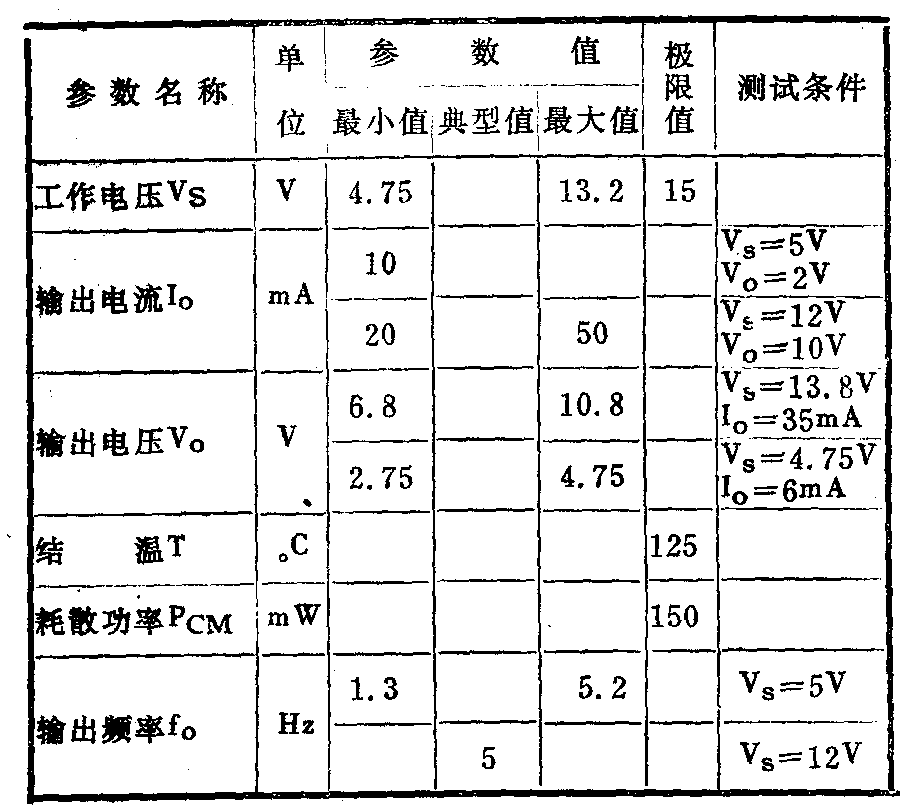 参数名称 单位 参数值 极限值 测试条件
最小值 典型值 最大值
工作电压VS V 4.75 13.2 15
输出电流Io mA 10 Vs=5V
Vo=2V
20 50 Vs=12V
Vo=10V
输出电压Vo V 6.8 10.8 Vs=13.8V
Io=35mA
2.75 4.75 Vs=4.75V
Io=6mA
结 温T °C 125
耗散功率PCM mW 150
输出频率fo Hz 1.3 5.2 Vs=5V
5 Vs=12V